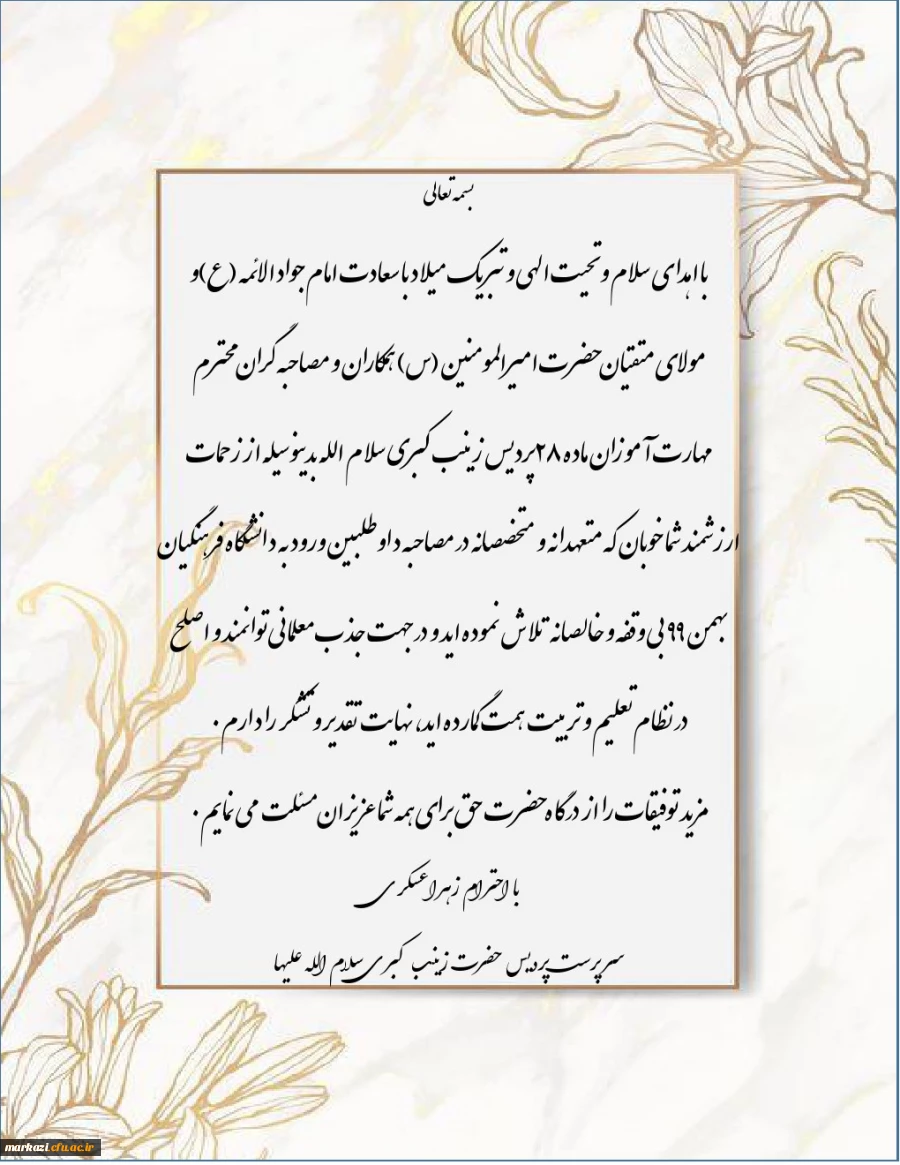 بسمه تعالی
با اهدای سلام و تحیت الهی و تبریک میلاد با سعادت امام جواد الائمه (ع) و
مولای متقیان حضرت امیرالمومنین (س) همکاران و مصاحبه گران محترم
مهارت آموزان ماده ۲۸ پردیس زینب کبری سلام الله بدینوسیله از زحمات
ارزشمند شما خوبان که متعهدانه و متخصصانه در مصاحبه داوطلبین ورود به دانشگاه فرهنگیان
بهمن ۹۹ بی وقفه و خالصانه تلاش نموده اید و در جهت جذب معلمانی توانمند و اصلح
در نظام تعلیم و تربیت همت گمارده اید، نهایت تقدیر و تشکر را دارم .
مزید توفیقات را از درگاه حضرت حق برای همه شما عزیزان مسئلت می نمایم .
با احترام زهرا عسکری
سرپرست پردیس حضرت زینب کبری سلام الله علیها
markazi.cfu.ac.ir